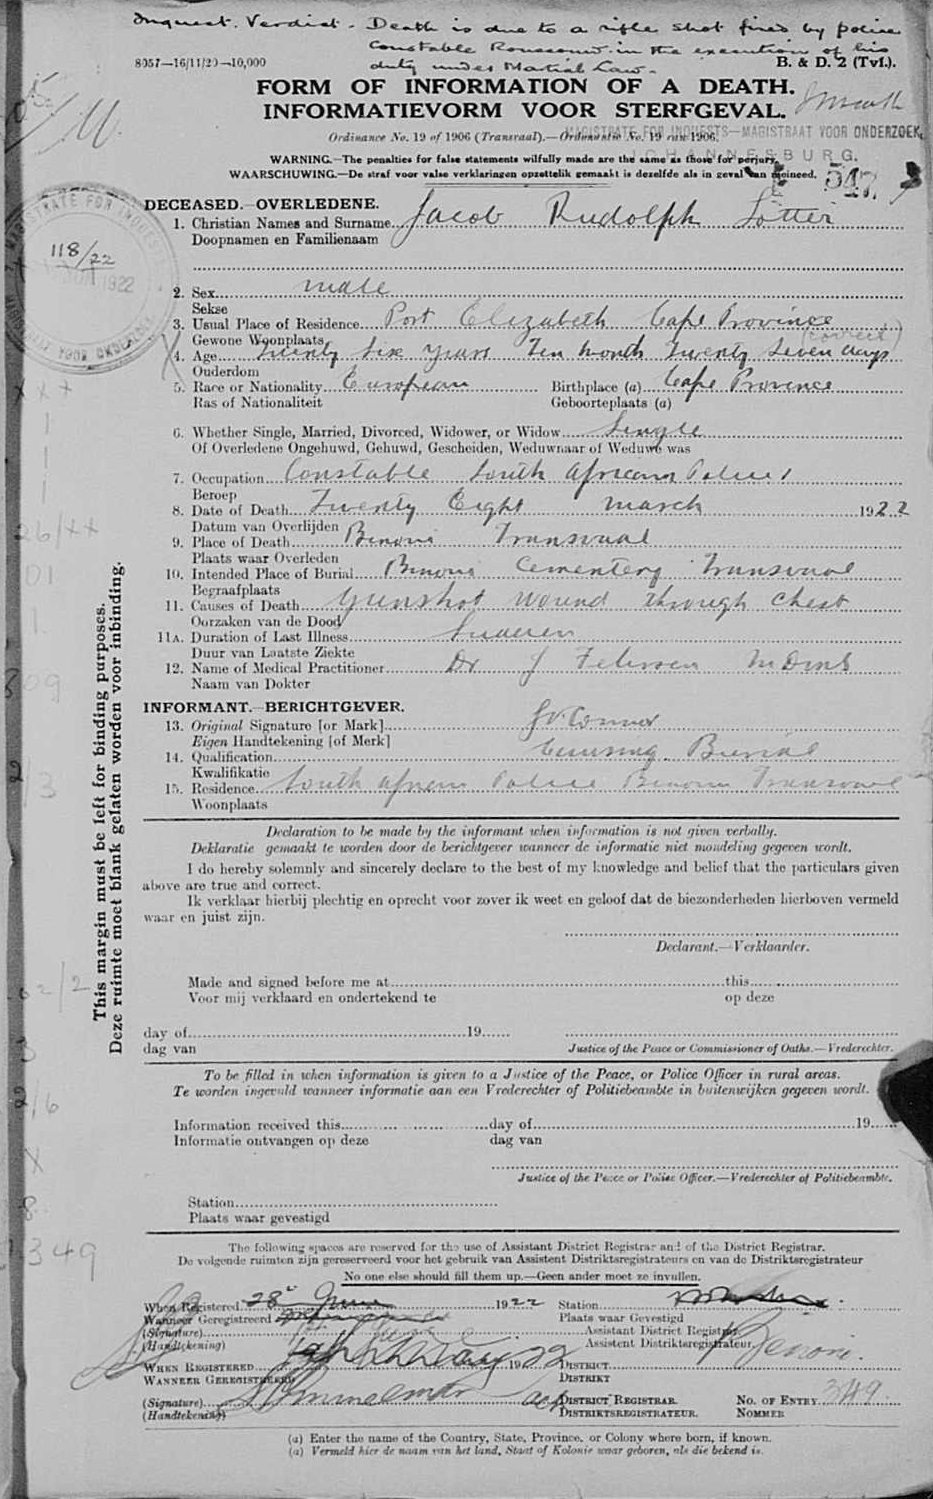 Inquest. Verdict - Death is due to a rifle shot fired by police
Constable Roussouw in the execution of his
duty under Martial Law -
8057—16/11/20—10,000
B. & D. 2 (Tvl.).
FORM OF INFORMATION OF A DEATH.
INFORMATIEVORM VOOR STERFGEVAL.
Ordinance No. 19 of 1906 (Transvaal).—Ordonnantie No. 19 van 1906.
MAGISTRATE FOR INQUESTS—MAGISTRAAT VOOR ONDERZOEK,
JOHANNESBURG.
WARNING.—The penalties for false statements wilfully made are the same as those for perjury.
WAARSCHUWING.—De straf voor valse verklaringen opzettelik gemaakt is dezelfde als in geval van meineed.
547
DECEASED.—OVERLEDENE.
1. Christian Names and Surname Jacob Rudolph Lötter
Doopnamen en Familienaam
118/22
1922
2. Sex male
Sekse
3. Usual Place of Residence Port Elizabeth Cape Province
Gewone Woonplaats (correct)
4. Age Twenty Six Years Ten Month Twenty Seven days
Ouderdom
5. Race or Nationality European Birthplace (a) Cape Province
Ras of Nationaliteit Geboorteplaats (a)
6. Whether Single, Married, Divorced, Widower, or Widow Single
Of Overledene Ongehuwd, Gehuwd, Gescheiden, Weduwnaar of Weduwe was
7. Occupation Constable South African Police
Beroep
8. Date of Death Twenty Eight March 1922
Datum van Overlijden
9. Place of Death Benoni Transvaal
Plaats waar Overleden
10. Intended Place of Burial Benoni Cementery Transvaal
Begraafplaats
11. Causes of Death Gunshot wound through chest
Oorzaken van de Dood
11A. Duration of Last Illness Sudden
Duur van Laatste Ziekte
12. Name of Medical Practitioner Dr J
Naam van Dokter
INFORMANT.—BERICHTGEVER.
13. Original Signature [or Mark]
Eigen Handtekening [of Merk]
14. Qualification Causing Burial
Kwalifikatie
15. Residence South African Police Benoni Transvaal
Woonplaats
This margin must be left for binding purposes.
Deze ruimte moet blank gelaten worden voor inbinding.
Declaration to be made by the informant when information is not given verbally.
Deklaratie gemaakt te worden door de berichtgever wanneer de informatie niet mondeling gegeven wordt.
I do hereby solemnly and sincerely declare to the best of my knowledge and belief that the particulars given
above are true and correct.
Ik verklaar hierbij plechtig en oprecht voor zover ik weet en geloof dat de biezonderheden hierboven vermeld
waar en juist zijn.
Declarant.—Verklaarder.
Made and signed before me at this
Voor mij verklaard en ondertekend te op deze
day of 19
dag van
Justice of the Peace or Commissioner of Oaths.—Vrederechter.
To be filled in when information is given to a Justice of the Peace, or Police Officer in rural areas.
Te worden ingevuld wanneer informatie aan een Vrederechter of Politiebeambte in buitenwijken gegeven wordt.
Information received this day of 19
Informatie ontvangen op deze dag van
Justice of the Peace or Police Officer.—Vrederechter of Politiebeambte.
Station
Plaats waar gevestigd
349
The following spaces are reserved for the use of Assistant District Registrar and of the District Registrar.
De volgende ruimten zijn gereserveerd voor het gebruik van Assistent Distriktsregistrateurs en van de Distriktsregistrateur
No one else should fill them up.—Geen ander moet ze invullen.
When Registered 28 June 1922 Station
Wanneer Geregistreerd Plaats waar Gevestigd
(Signature) Assistant District Registrar
(Handtekening) Assistent Distriktsregistrateur.
WHEN REGISTERED 1922 DISTRICT Benoni.
WANNEER GEREGISTREERD DISTRIKT
(Signature) DISTRICT REGISTRAR. NO. OF ENTRY 349.
(Handtekening) DISTRIKTSREGISTRATEUR. NOMMER
(a) Enter the name of the Country, State, Province, or Colony where born, if known.
(a) Vermeld hier de naam van het land, Staat of Kolonie waar geboren, als die bekend is.